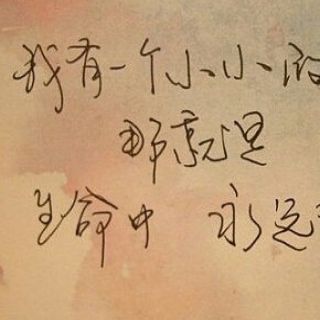 我有一个小小的
那就是
生命中 永远